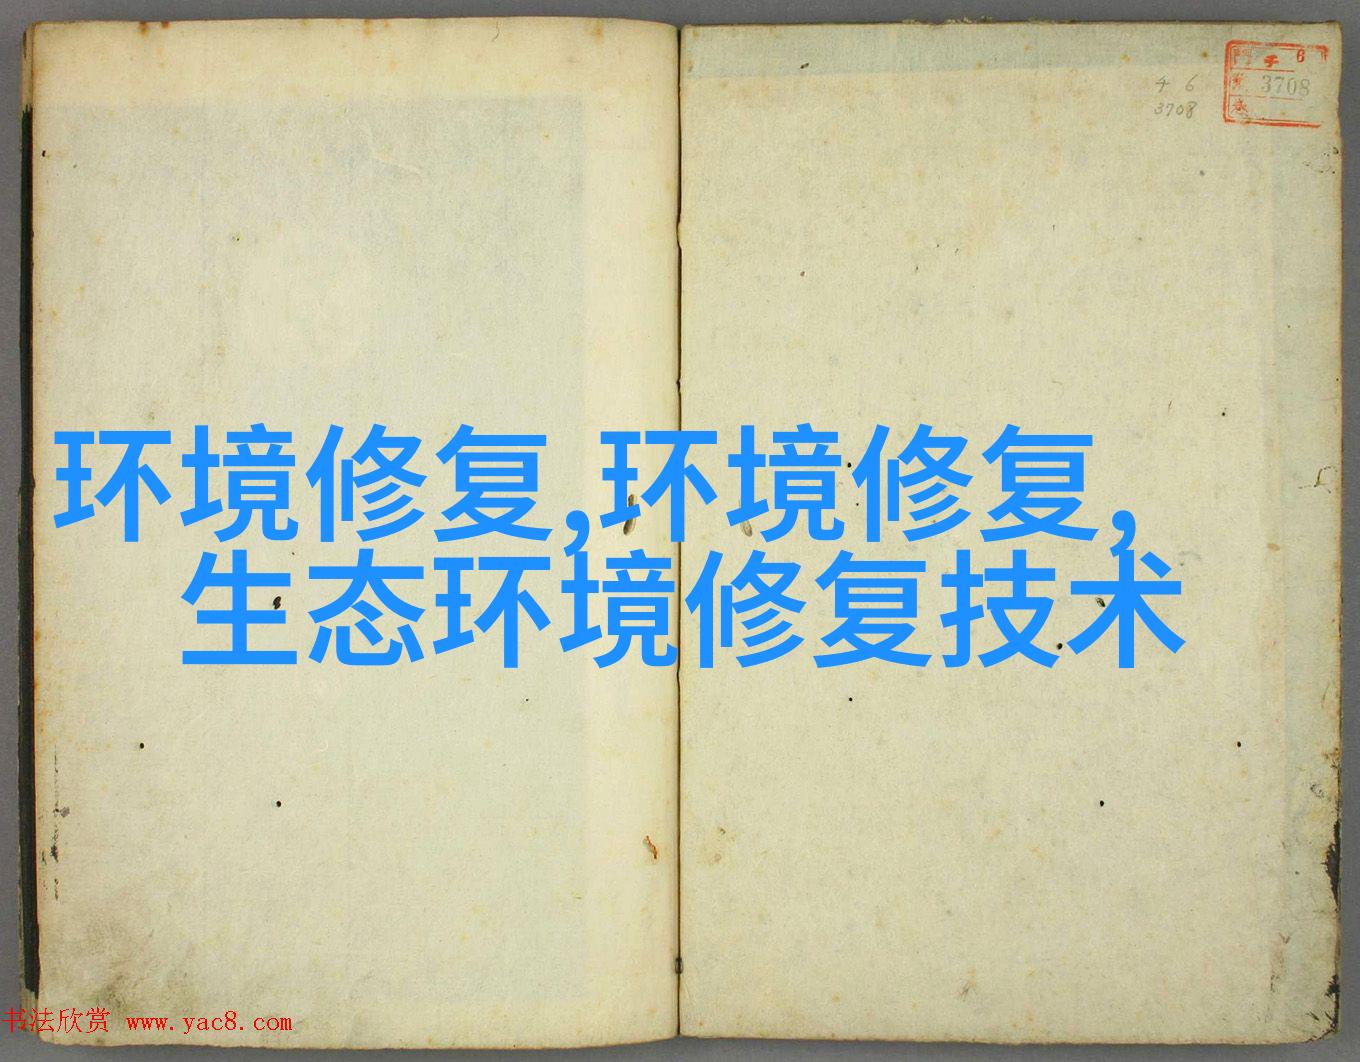 チ 6
3708
4 6
3708
环境修复,环境修复,
生态环境修复技术
书法欣赏 www.yac8.com